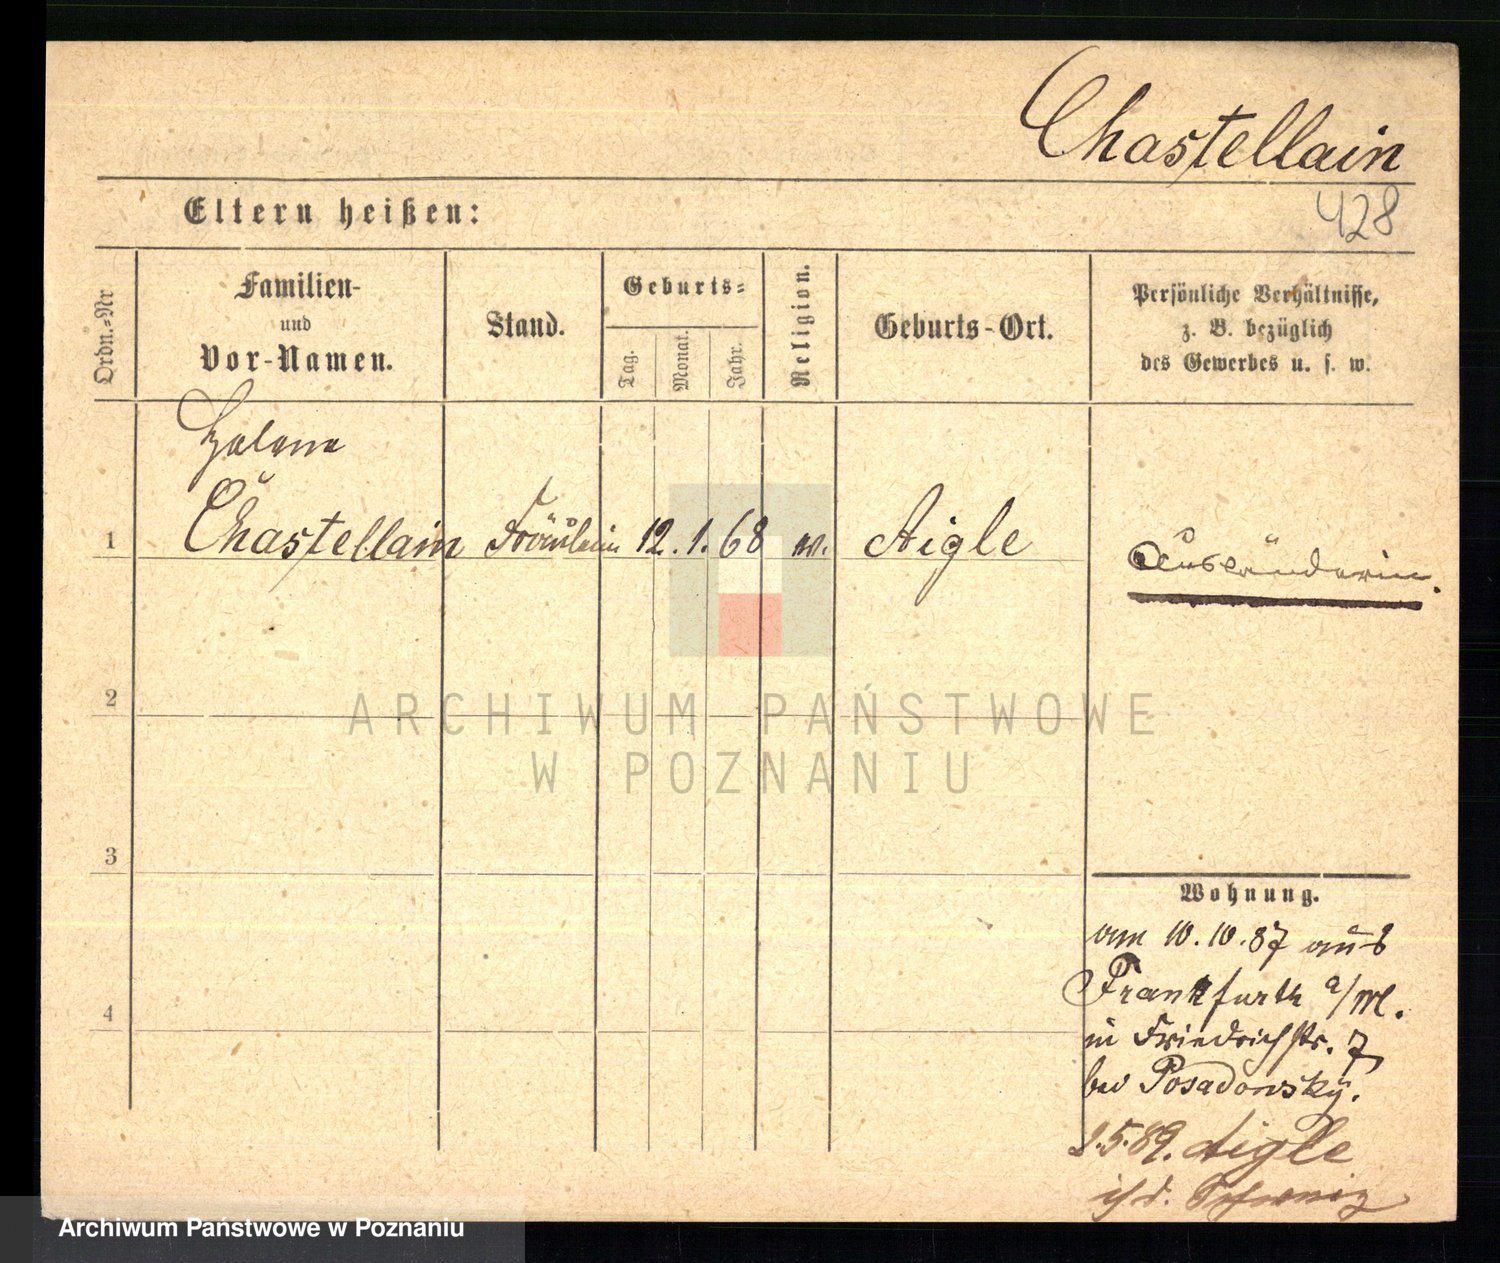 Chastellain
428
Eltern heißen:
Ordn.-Nr
Familien-
und
Vor-Namen.
Stand.
Geburts-
Tag.
Monat.
Jahr.
Religion.
Geburts-Ort.
Persönliche Verhältnisse,
z. B. bezüglich
des Gewerbes u. s. w.
Helene
1 Chastellain Fräulein 12. 1. 68 Aigle
Ausländerin.
2
3
4
Wohnung.
am 10.10.87 aus
Frankfurth a/M.
in Friedrichstr. 7
bei Posadowsky.
5.89. Aigle
i/d. Schweiz
ARCHIWUM PAŃSTWOWE
W POZNANIU
Archiwum Państwowe w Poznaniu